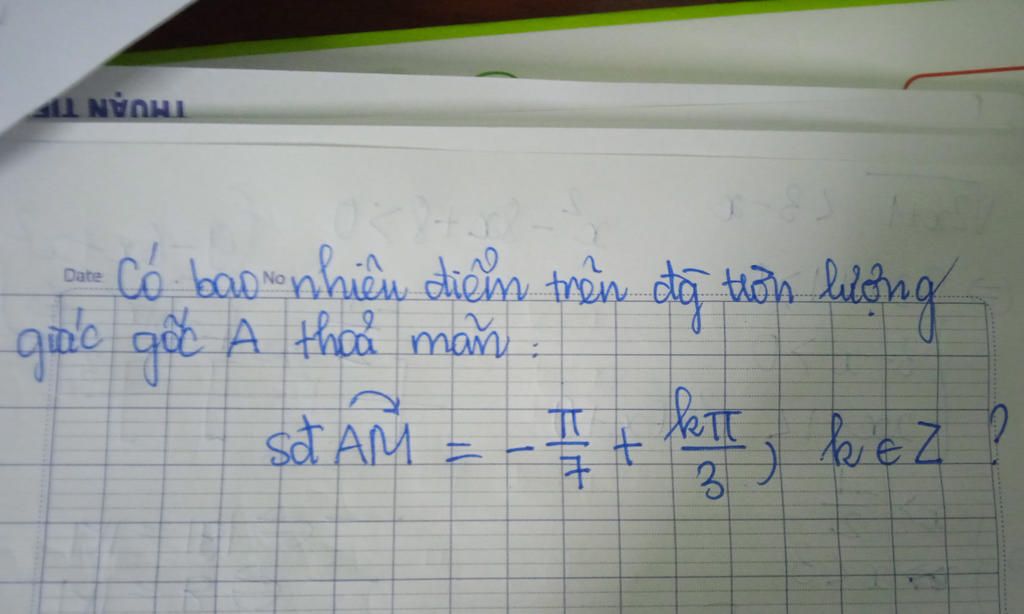 THUẬN TIẾ
x² - 8x + 8 > 0
Date No
Có bao nhiêu điểm trên đg tròn lượng
giác gốc A thoả mãn:
sđ AM = - π/7 + kπ/3, k ∈ Z ?